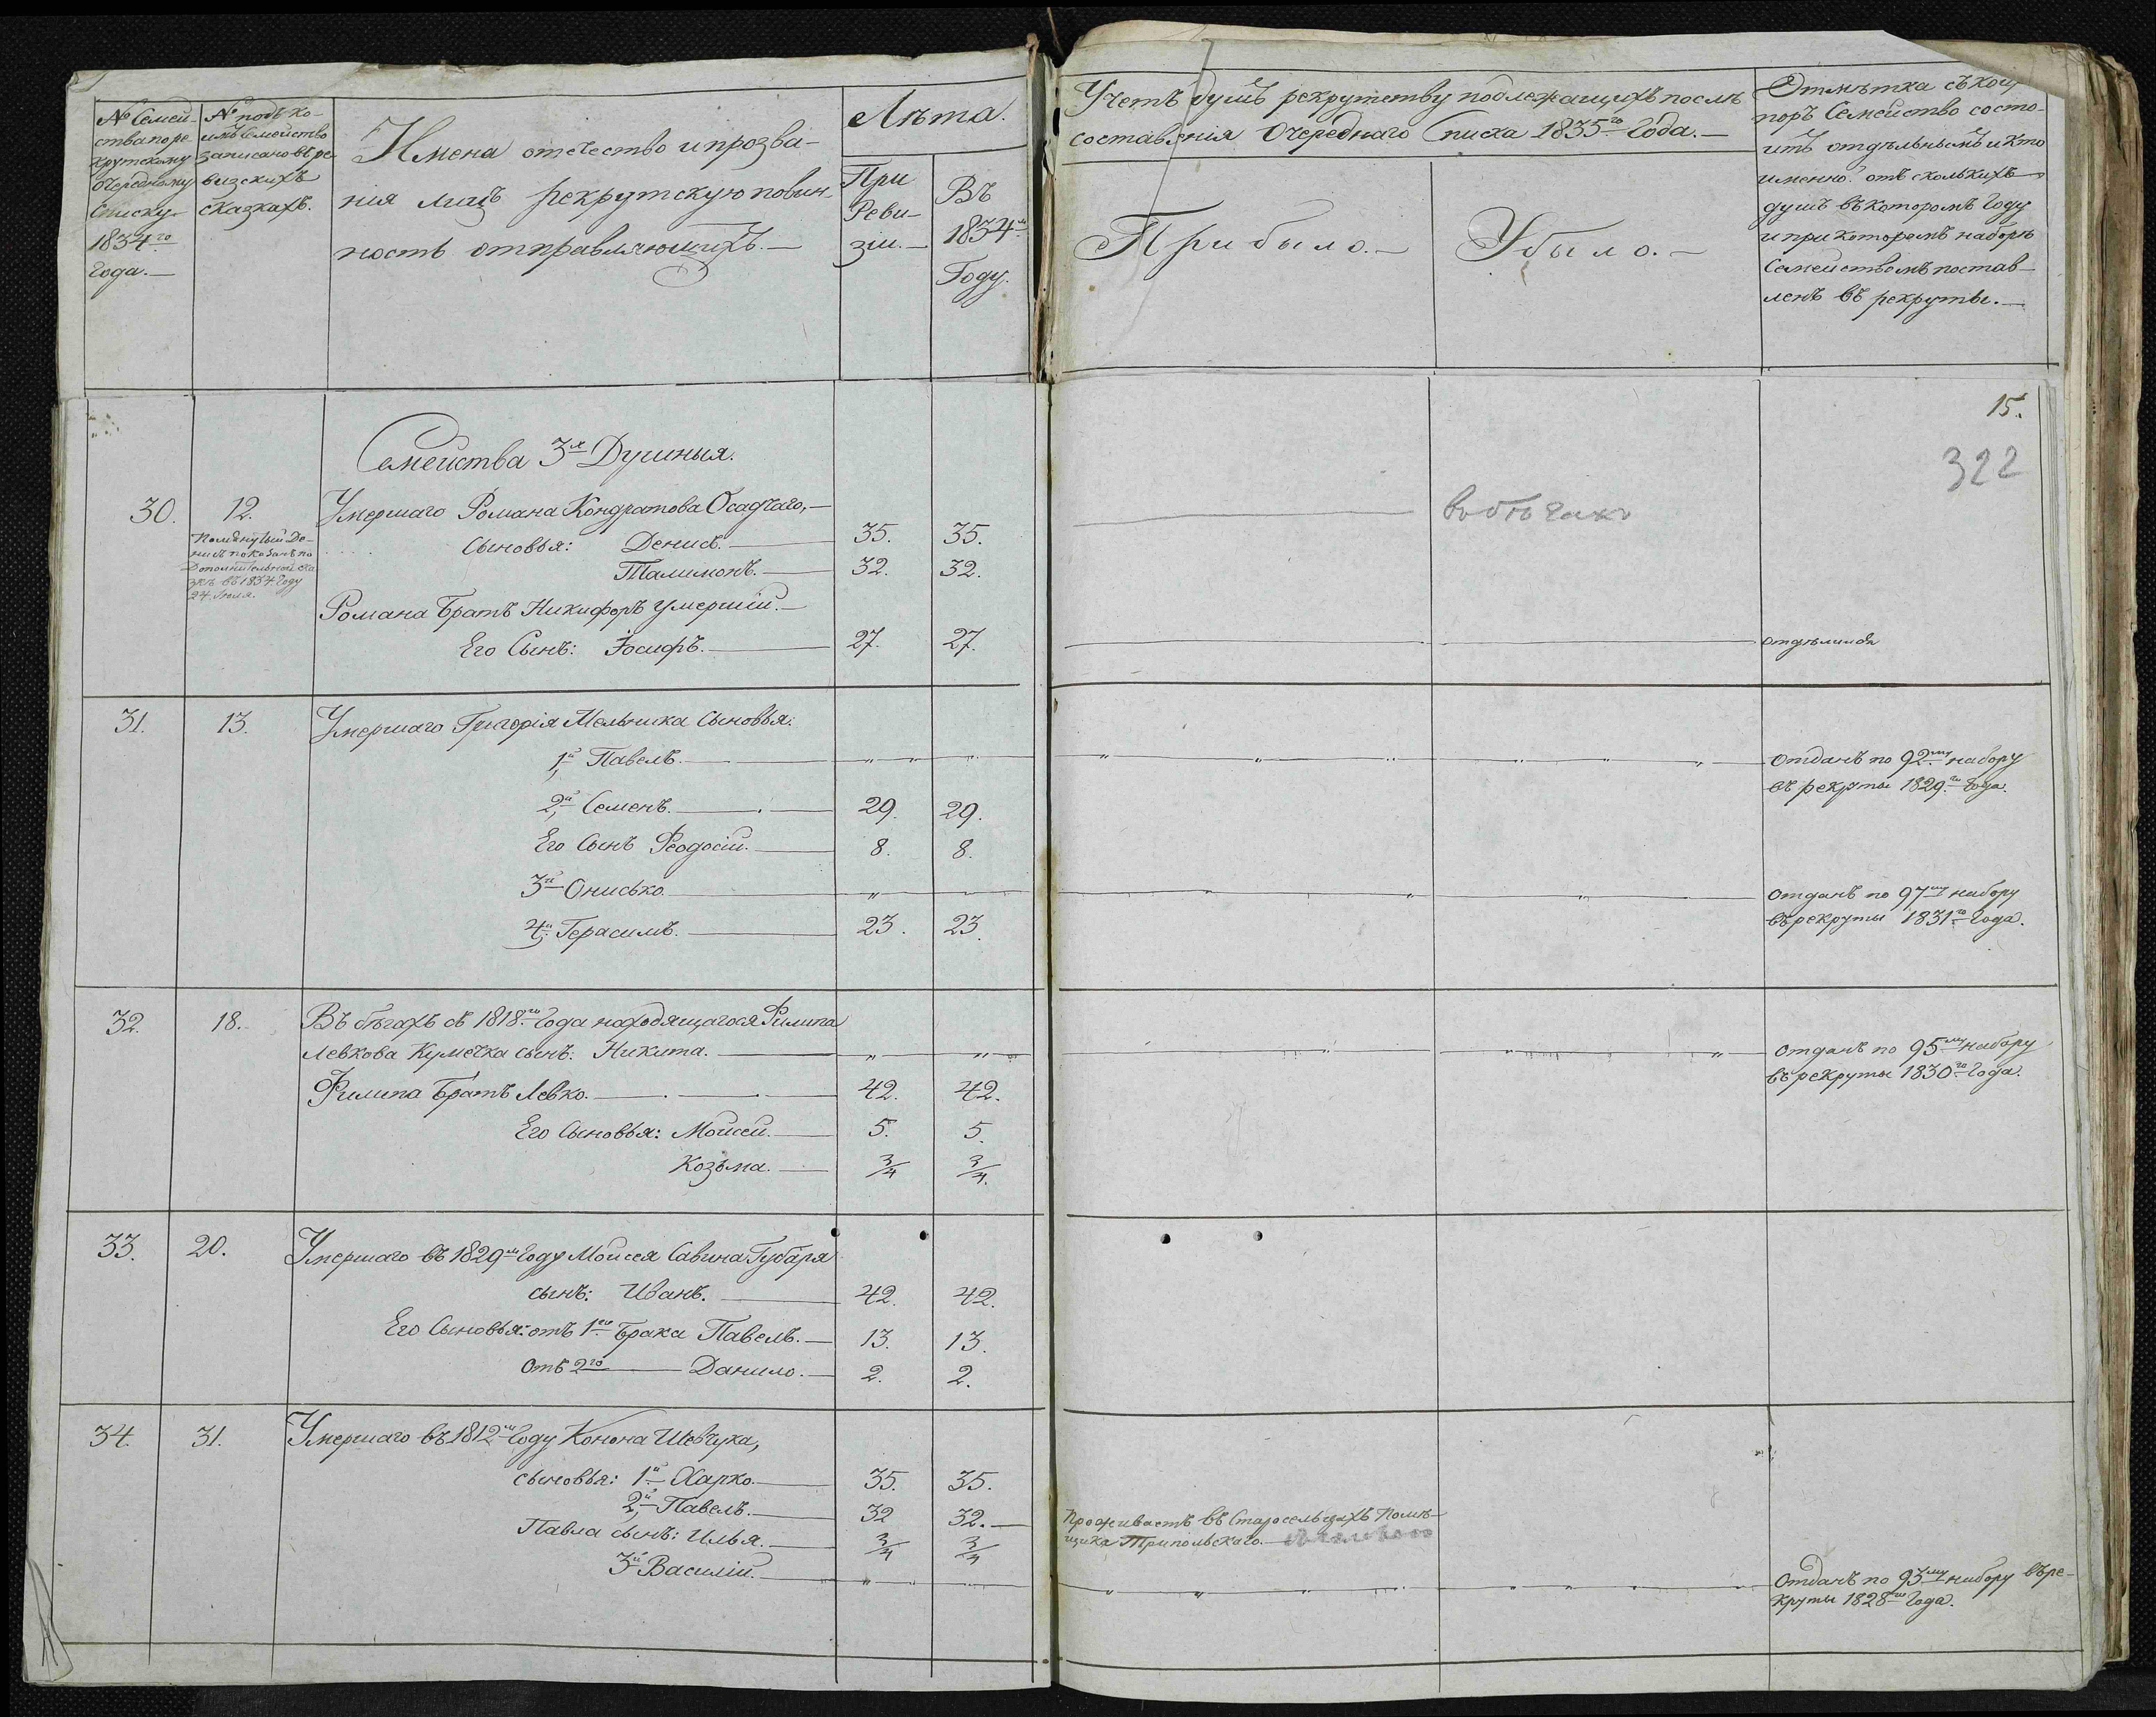 № Семей-
ства по ре-
крутскому
очередному
списку
1834го
года.—
№ подъ ко-
имъ семейство
записано въ ре-
визскихъ
сказкахъ.
Имена отечество и прозва-
нія лицъ рекрутскую повин-
ность отправляющихъ.—
Лѣта.
При
Реви-
зіи.—
Въ
1834м
Году.
Учетъ душъ рекрутству подлежащихъ послѣ
составленія Очереднаго Списка 1835го Года.—
Прибыло.—
Убыло.—
Отмѣтка съ кои
поръ Семейство состо-
итъ отдѣльнымъ и кто
именно отъ сколькихъ
душъ въ которомъ Году
и при которомъ наборѣ
Семействомъ постав-
ленъ въ рекруты.—
15.
322
Семейства 3х Душныя.
30. 12. Умершаго Романа Кондратова Осадчаго,—
Помянутый Де-
нисъ показанъ по
Дополнительной ска
зкѣ въ 1834 Году
24. Июля.
Сыновья: Денисъ.— 35. 35.
Талимонъ.— 32. 32.
Романа Братъ Никифоръ умершій.—
Его Сынъ: Іосифъ.— 27. 27. отдѣлился
въ бѣгахъ
31. 13. Умершаго Григорія Мельника Сыновья:
1й Павелъ.— Отданъ по 92му набору
въ рекруты 1829го Года.
2й Семенъ.— 29. 29.
Его Сынъ Феодосій.— 8. 8.
3й Онисько.— Отданъ по 97му набору
въ рекруты 1831го Года.
4й Герасимъ.— 23. 23.
32. 18. Въ бѣгахъ съ 1818го Года находящагося Филипа
Левкова Кумечка сынъ: Никита.— отданъ по 95му набору
въ рекруты 1830го Года.
Филипа Братъ Левко.— 42. 42.
Его Сыновья: Мойсей.— 5. 5.
Козьма.— 3/4 3/4.
33. 20. Умершаго въ 1829м Году Мойсея Савина Губаря
сынъ: Иванъ.— 42. 42.
Его Сыновья: отъ 1го Брака Павелъ.— 13. 13.
Отъ 2го — Данило.— 2. 2.
34. 31. Умершаго въ 1812м Году Конона Шевчука,
сыновья: 1й Харко.— 35. 35.
2й Павелъ.— 32 32.— Проживаетъ въ Старосельцахъ Помѣ-
щика Трипольскаго.
Павла сынъ: Илья.— 3/4 3/4
3й Василій.— Отданъ по 93му набору въ ре-
круты 1828го Года.